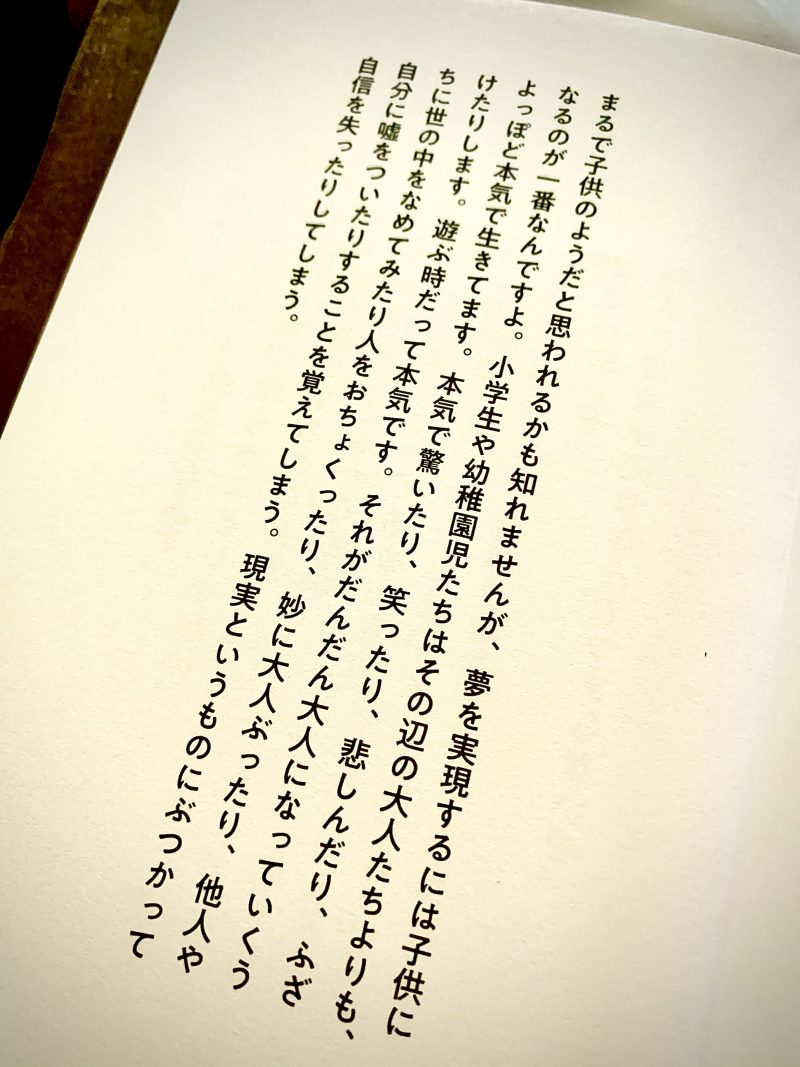 まるで子供のようだと思われるかも知れませんが、夢を実現するには子供に
なるのが一番なんですよ。小学生や幼稚園児たちはその辺の大人たちよりも、
よっぽど本気で生きてます。本気で驚いたり、笑ったり、悲しんだり、ふざ
けたりします。遊ぶ時だって本気です。それがだんだん大人になっていくう
ちに世の中をなめてみたり人をおちょくったり、妙に大人ぶったり、他人や
自分に嘘をついたりすることを覚えてしまう。現実というものにぶつかって
自信を失ったりしてしまう。